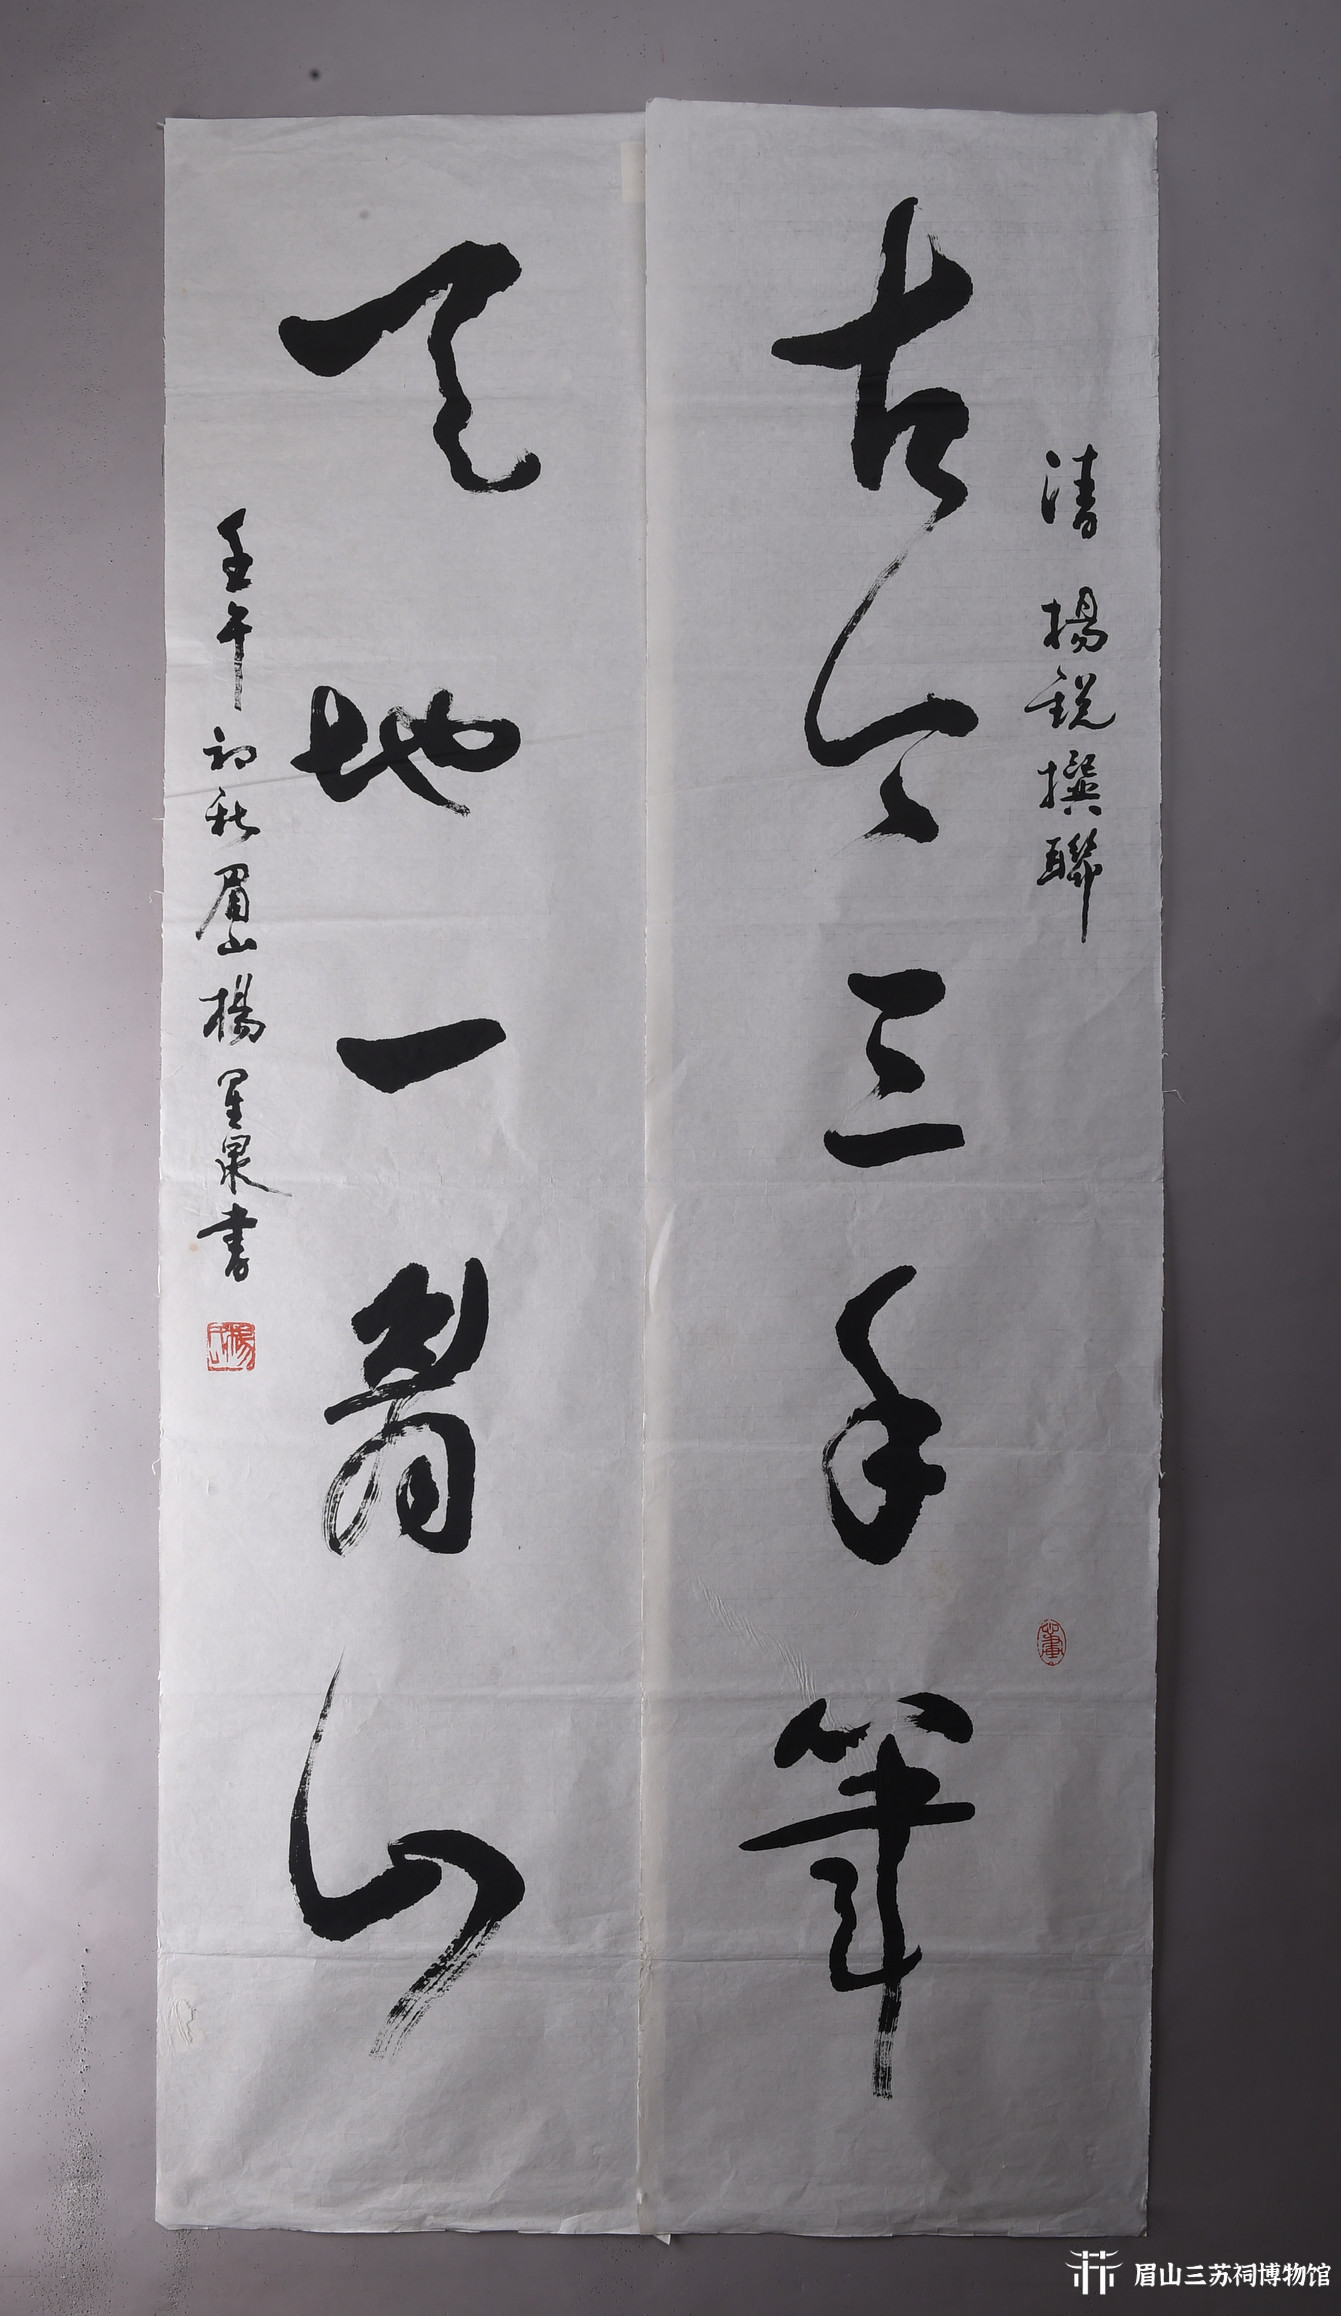 清 楊銳撰聯
古今三手筆
天地一眉山
壬午初秋眉山楊星泉書
眉山三苏祠博物馆